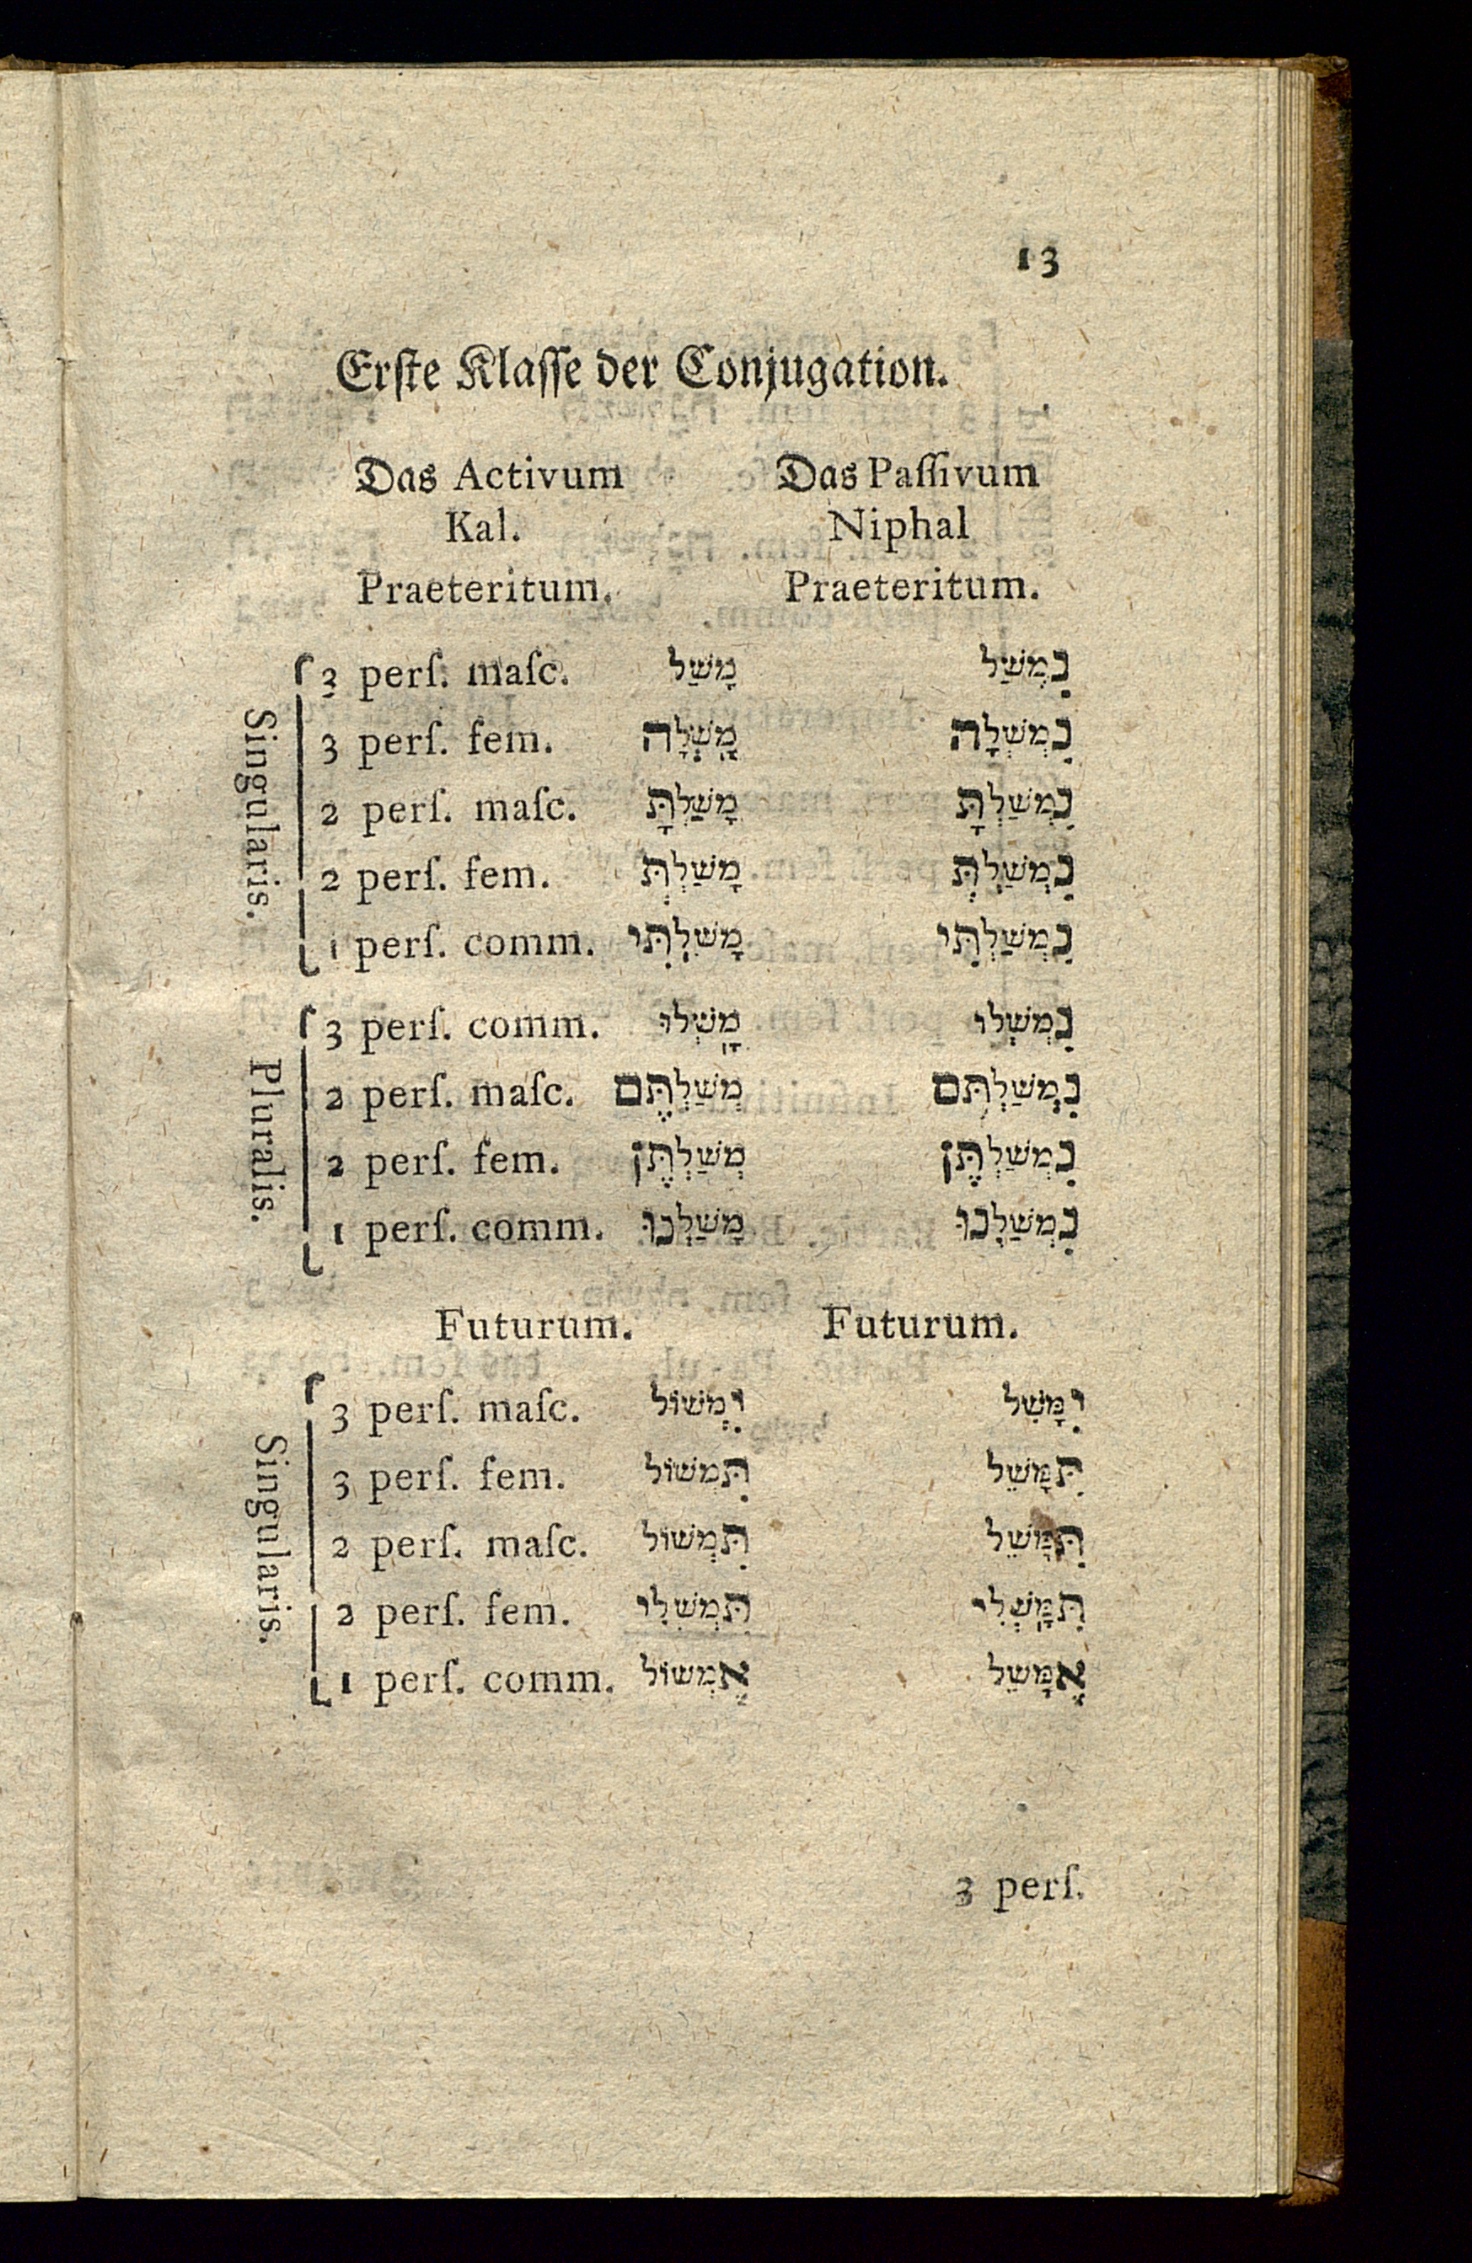 13
Erſte Klaſſe der Conjugation.
Das Activum Das Paſſivum
Kal. Niphal
Praeteritum. Praeteritum.
Singularis.
3 perſ. maſc. מָשַׁל נִמְשַׁל
3 perſ. fem. מָֽשְׁלָה נִמְשְׁלָה
2 perſ. maſc. מָשַׁלְתָּ נִמְשַׁלְתָּ
2 perſ. fem. מָשַׁלְתְּ נִמְשַׁלְתְּ
1 perſ. comm. מָשַׁלְתִּי נִמְשַׁלְתִּי
Pluralis.
3 perſ. comm. מָֽשְׁלוּ נִמְשְׁלוּ
2 perſ. maſc. מְשַׁלְתֶּם נִמְשַׁלְתֶּם
2 perſ. fem. מְשַׁלְתֶּן נִמְשַׁלְתֶּן
1 perſ. comm. מָשַׁלְנוּ נִמְשַׁלְנוּ
Futurum. Futurum.
Singularis.
3 perſ. maſc. יִמְשׁוֹל יִמָּשֵׁל
3 perſ. fem. תִּמְשׁוֹל תִּמָּשֵׁל
2 perſ. maſc. תִּמְשׁוֹל תִּמָּשֵׁל
2 perſ. fem. תִּמְשְׁלִי תִּמָּֽשְׁלִי
1 perſ. comm. אֶמְשׁוֹל אֶמָּשֵׁל
3 perſ.